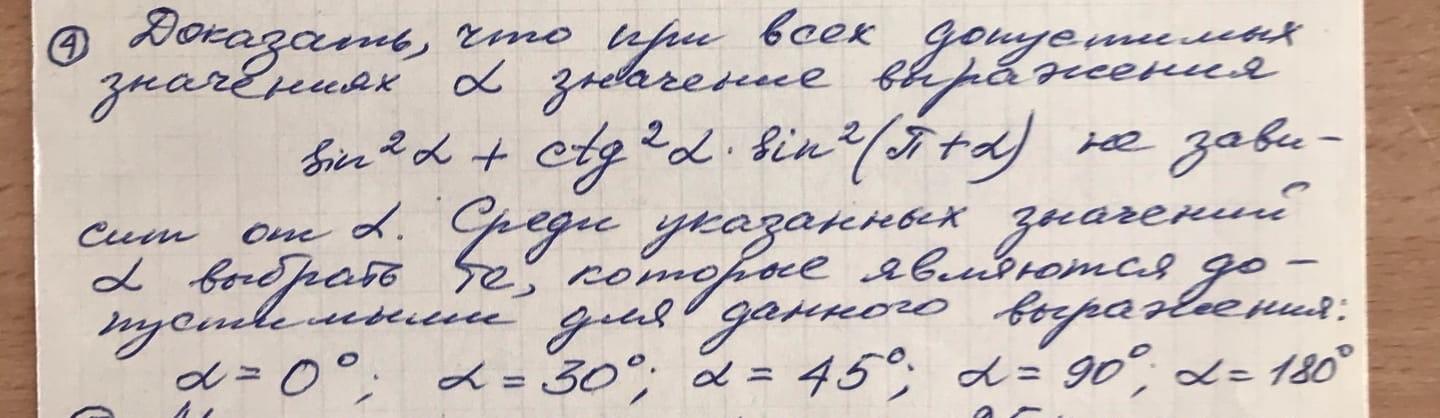 ④ Доказать, что при всех допустимых
значениях α значение выражения
sin²α + ctg²α · sin²(π+α) не зави-
сит от α. Среди указанных значений
α выбрать те, которые являются до-
пустимыми для данного выражения:
α = 0°; α = 30°; α = 45°; α = 90°; α = 180°